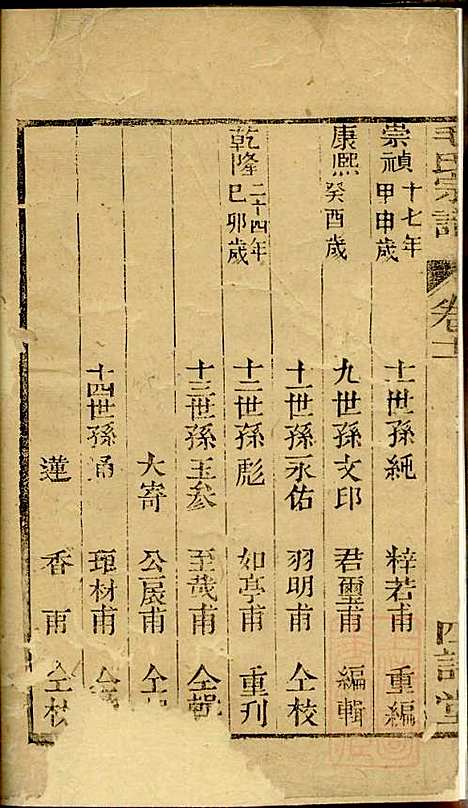 毛氏宗譜 卷十一
崇禎十七年甲申歲 十一世孫純 梓若甫 重編
康熙癸酉歲 九世孫文印 君璽甫 編輯
十一世孫永佑 羽明甫 仝校
乾隆二十四年己卯歲 十二世孫彪 如亭甫 重刊
十三世孫玉參 至哉甫 仝輯
大寄 公扆甫 仝
十四世孫涌 理材甫 仝
蓮 香甫 仝校